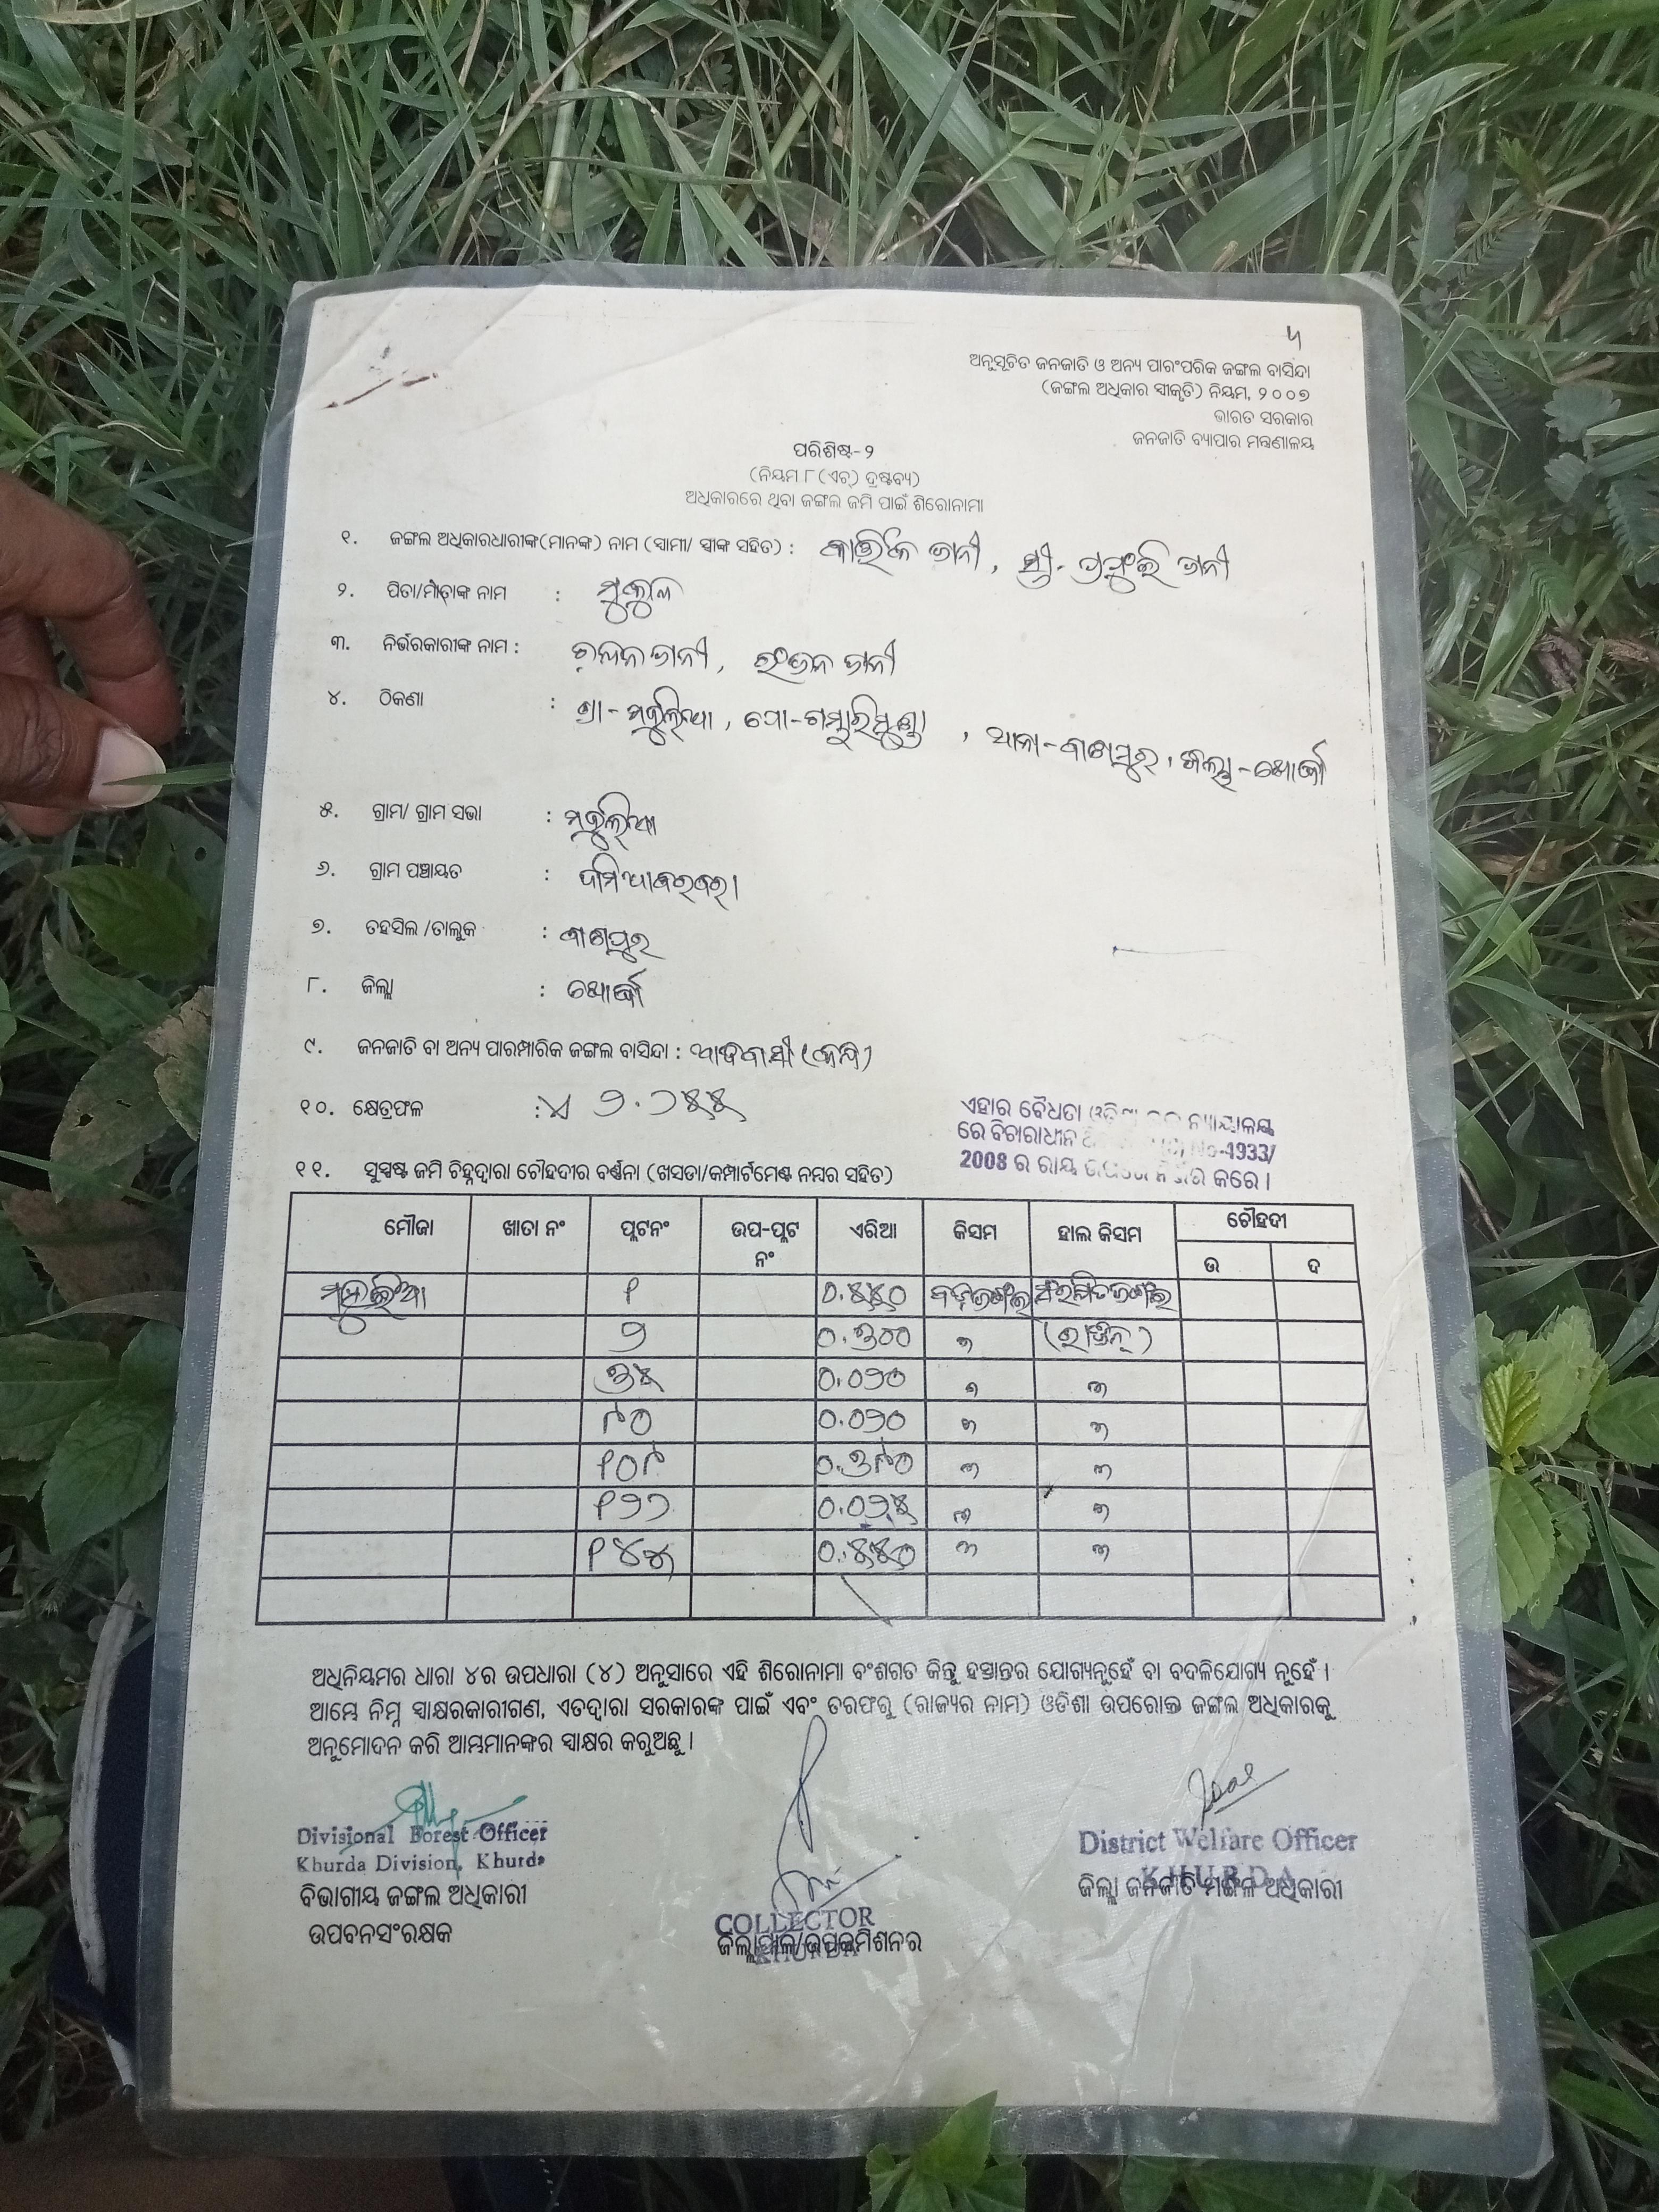 ୳
ଅନୁସୂଚିତ ଜନଜାତି ଓ ଅନ୍ୟ ପାରଂପରିକ ଜଙ୍ଗଲ ବାସିନ୍ଦା
(ଜଙ୍ଗଲ ଅଧିକାର ସ୍ୱୀକୃତି) ନିୟମ, ୨୦୦୭
ଭାରତ ସରକାର
ଜନଜାତି ବ୍ୟାପାର ମନ୍ତ୍ରଣାଳୟ
ପରିଶିଷ୍ଟ-୨
(ନିୟମ ୮ (ଏଚ୍) ଦ୍ରଷ୍ଟବ୍ୟ)
ଅଧିକାରରେ ଥିବା ଜଙ୍ଗଲ ଜମି ପାଇଁ ଶିରୋନାମା
୧. ଜଙ୍ଗଲ ଅଧିକାରଧାରୀଙ୍କ(ମାନଙ୍କ) ନାମ (ସ୍ୱାମୀ/ ସ୍ତ୍ରୀଙ୍କ ସହିତ) : କାର୍ତ୍ତିକ ଭାନୀ, ସ୍ତ୍ରୀ- ଭାନୀ
୨. ପିତା/ମାତାଙ୍କ ନାମ : ମୁକୁଳି
୩. ନିର୍ଭରକାରୀଙ୍କ ନାମ : ଚନ୍ଦନ ଭାନୀ, ରଂଜନ ଭାନୀ
୪. ଠିକଣା : ଗ୍ରା- , ପୋ-ଗମ୍ଭାରିମୁଣ୍ଡା , ଥାନା-ବାଣପୁର, ଜିଲ୍ଲା-ଖୋର୍ଦ୍ଧା
୫. ଗ୍ରାମ/ ଗ୍ରାମ ସଭା :
୬. ଗ୍ରାମ ପଞ୍ଚାୟତ :
୭. ତହସିଲ /ତାଲୁକ : ବାଣପୁର
୮. ଜିଲ୍ଲା : ଖୋର୍ଦ୍ଧା
୯. ଜନଜାତି ବା ଅନ୍ୟ ପାରମ୍ପାରିକ ଜଙ୍ଗଲ ବାସିନ୍ଦା : ଆଦିବାସୀ (କନ୍ଧ)
୧୦. କ୍ଷେତ୍ରଫଳ : ୨.୨୫୫
ଏହାର ବୈଧତା ଓଡିଶା ନ୍ୟାୟାଳୟ
ରେ ବିଚାରାଧୀନ No-4933/
2008 ର ରାୟ ଉପରେ ନିର୍ଭର କରେ ।
୧୧. ସୁସ୍ପଷ୍ଟ ଜମି ଚିହ୍ନଦ୍ୱାରା ଚୌହଦୀର ବର୍ଣ୍ଣନା (ଖସଡା/କମ୍ପାର୍ଟମେଣ୍ଟ ନମ୍ବର ସହିତ)
ମୌଜା ଖାତା ନଂ ପ୍ଲଟନଂ ଉପ-ପ୍ଲଟ ନଂ ଏରିଆ କିସମ ହାଲ କିସମ ଚୌହଦୀ
ଉ ଦ
୧ ୦.୫୫୦
୨ ୦.୩୦୦ "
୩୫ ୦.୦୨୦ " "
୯୦ ୦.୦୨୦ " "
୧୦୯ ୦.୩୯୦ " "
୧୨୨ ୦.୦୨୫ " "
୧୪୫ ୦.୫୫୦ " "
ଅଧିନିୟମର ଧାରା ୪ର ଉପଧାରା (୪) ଅନୁସାରେ ଏହି ଶିରୋନାମା ବଂଶଗତ କିନ୍ତୁ ହସ୍ତାନ୍ତର ଯୋଗ୍ୟନୁହେଁ ବା ବଦଳିଯୋଗ୍ୟ ନୁହେଁ ।
ଆମ୍ଭେ ନିମ୍ନ ସ୍ୱାକ୍ଷରକାରୀଗଣ, ଏତଦ୍ଦ୍ୱାରା ସରକାରଙ୍କ ପାଇଁ ଏବଂ ତରଫରୁ (ରାଜ୍ୟର ନାମ) ଓଡିଶା ଉପରୋକ୍ତ ଜଙ୍ଗଲ ଅଧିକାରକୁ
ଅନୁମୋଦନ କରି ଆମ୍ଭମାନଙ୍କର ସ୍ୱାକ୍ଷର କରୁଅଛୁ ।
Divisional Forest Officer
Khurda Division, Khurda
ବିଭାଗୀୟ ଜଙ୍ଗଲ ଅଧିକାରୀ
ଉପବନସଂରକ୍ଷକ
COLLECTOR
KHURDA
ଜିଲ୍ଲାପାଳ/ଉପକମିଶନର
District Welfare Officer
KHURDA
ଜିଲ୍ଲା ଜନଜାତି ମଙ୍ଗଳ ଅଧିକାରୀ